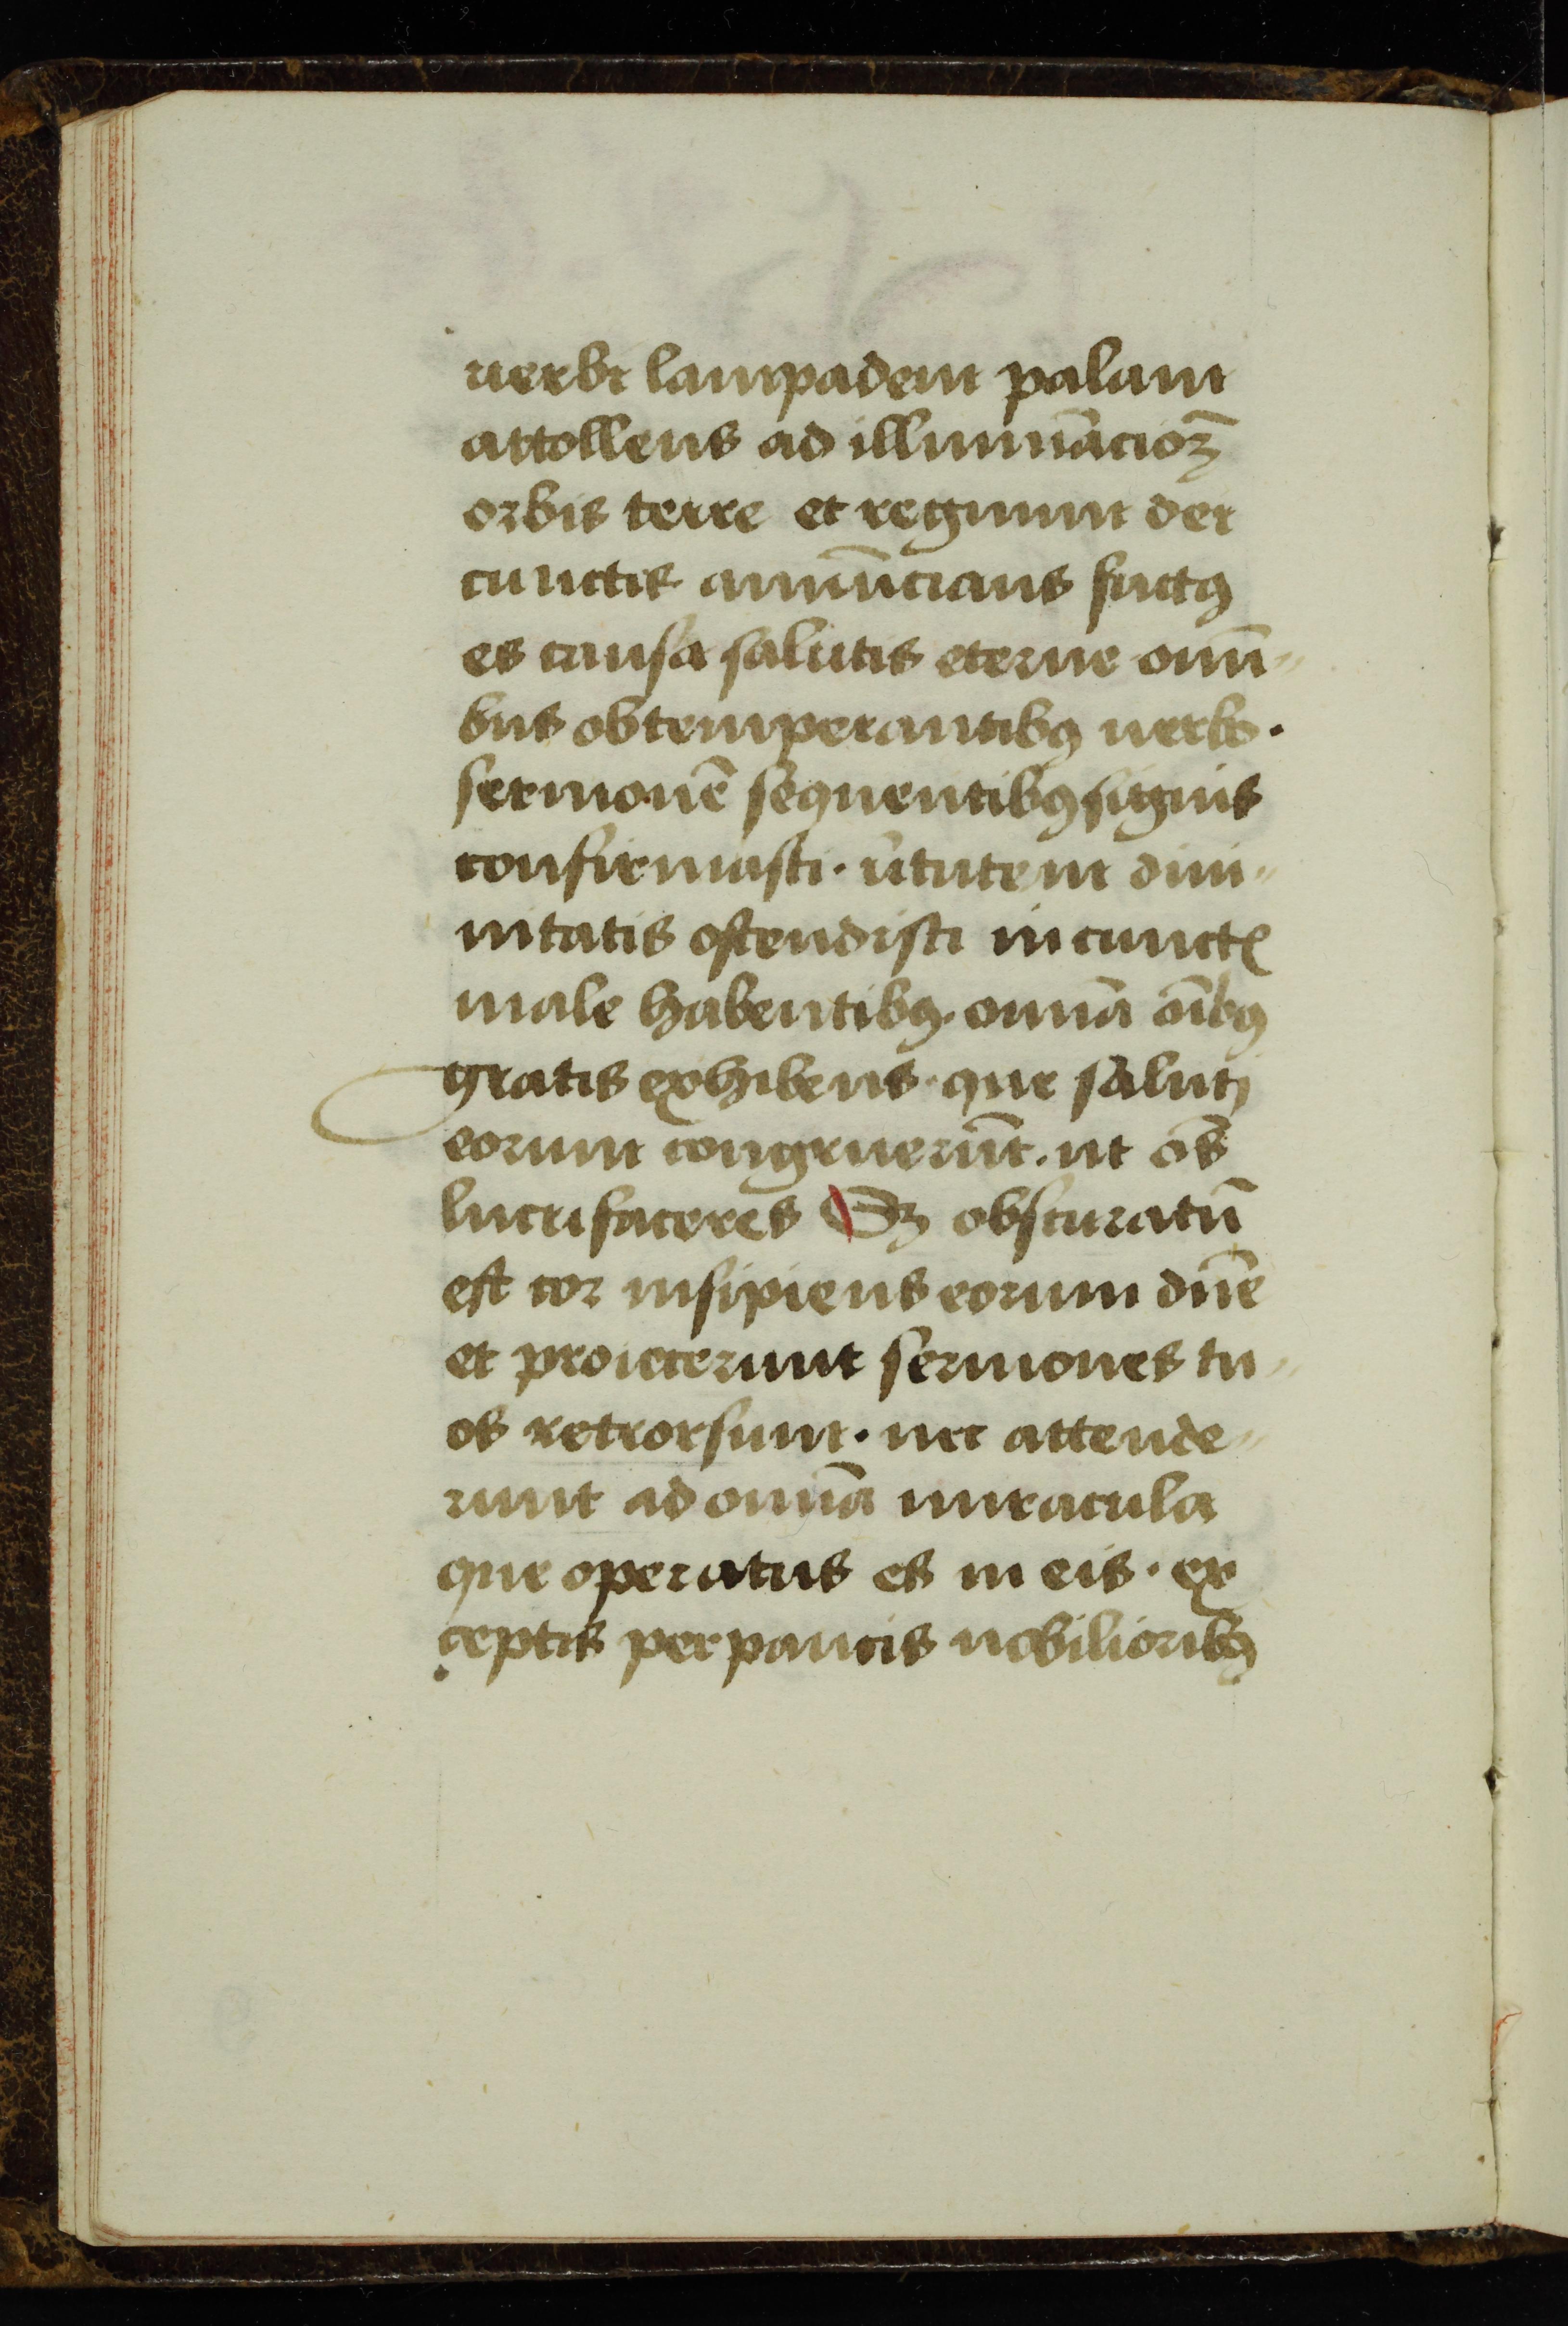 uerbi lampadem palam
attollens ad illuminacioꝫ
orbis terre et regnum dei
cunctis annūcians factꝯ
es causa salutis eterne omī〃
bus obtemperantibꝯ uerbo·
sermonē sequentibꝯ signis
confirmasti· ŭtutem diui〃
nitatis ostendisti in cunctꝭ
male habentibꝯ· omīa oībꝯ
gratis exhibens· que saluti
eorum congruerūt· ut oēs
lucrifaceres Sꝫ obscuratū
est cor insipiens eorum dn̄e
et proiecerunt sermones tu〃
os retrorsum· nec attende〃
runt ad omīa miracula
que operatus es in eis· ex
ceptis perpaucis nobilioribꝯ